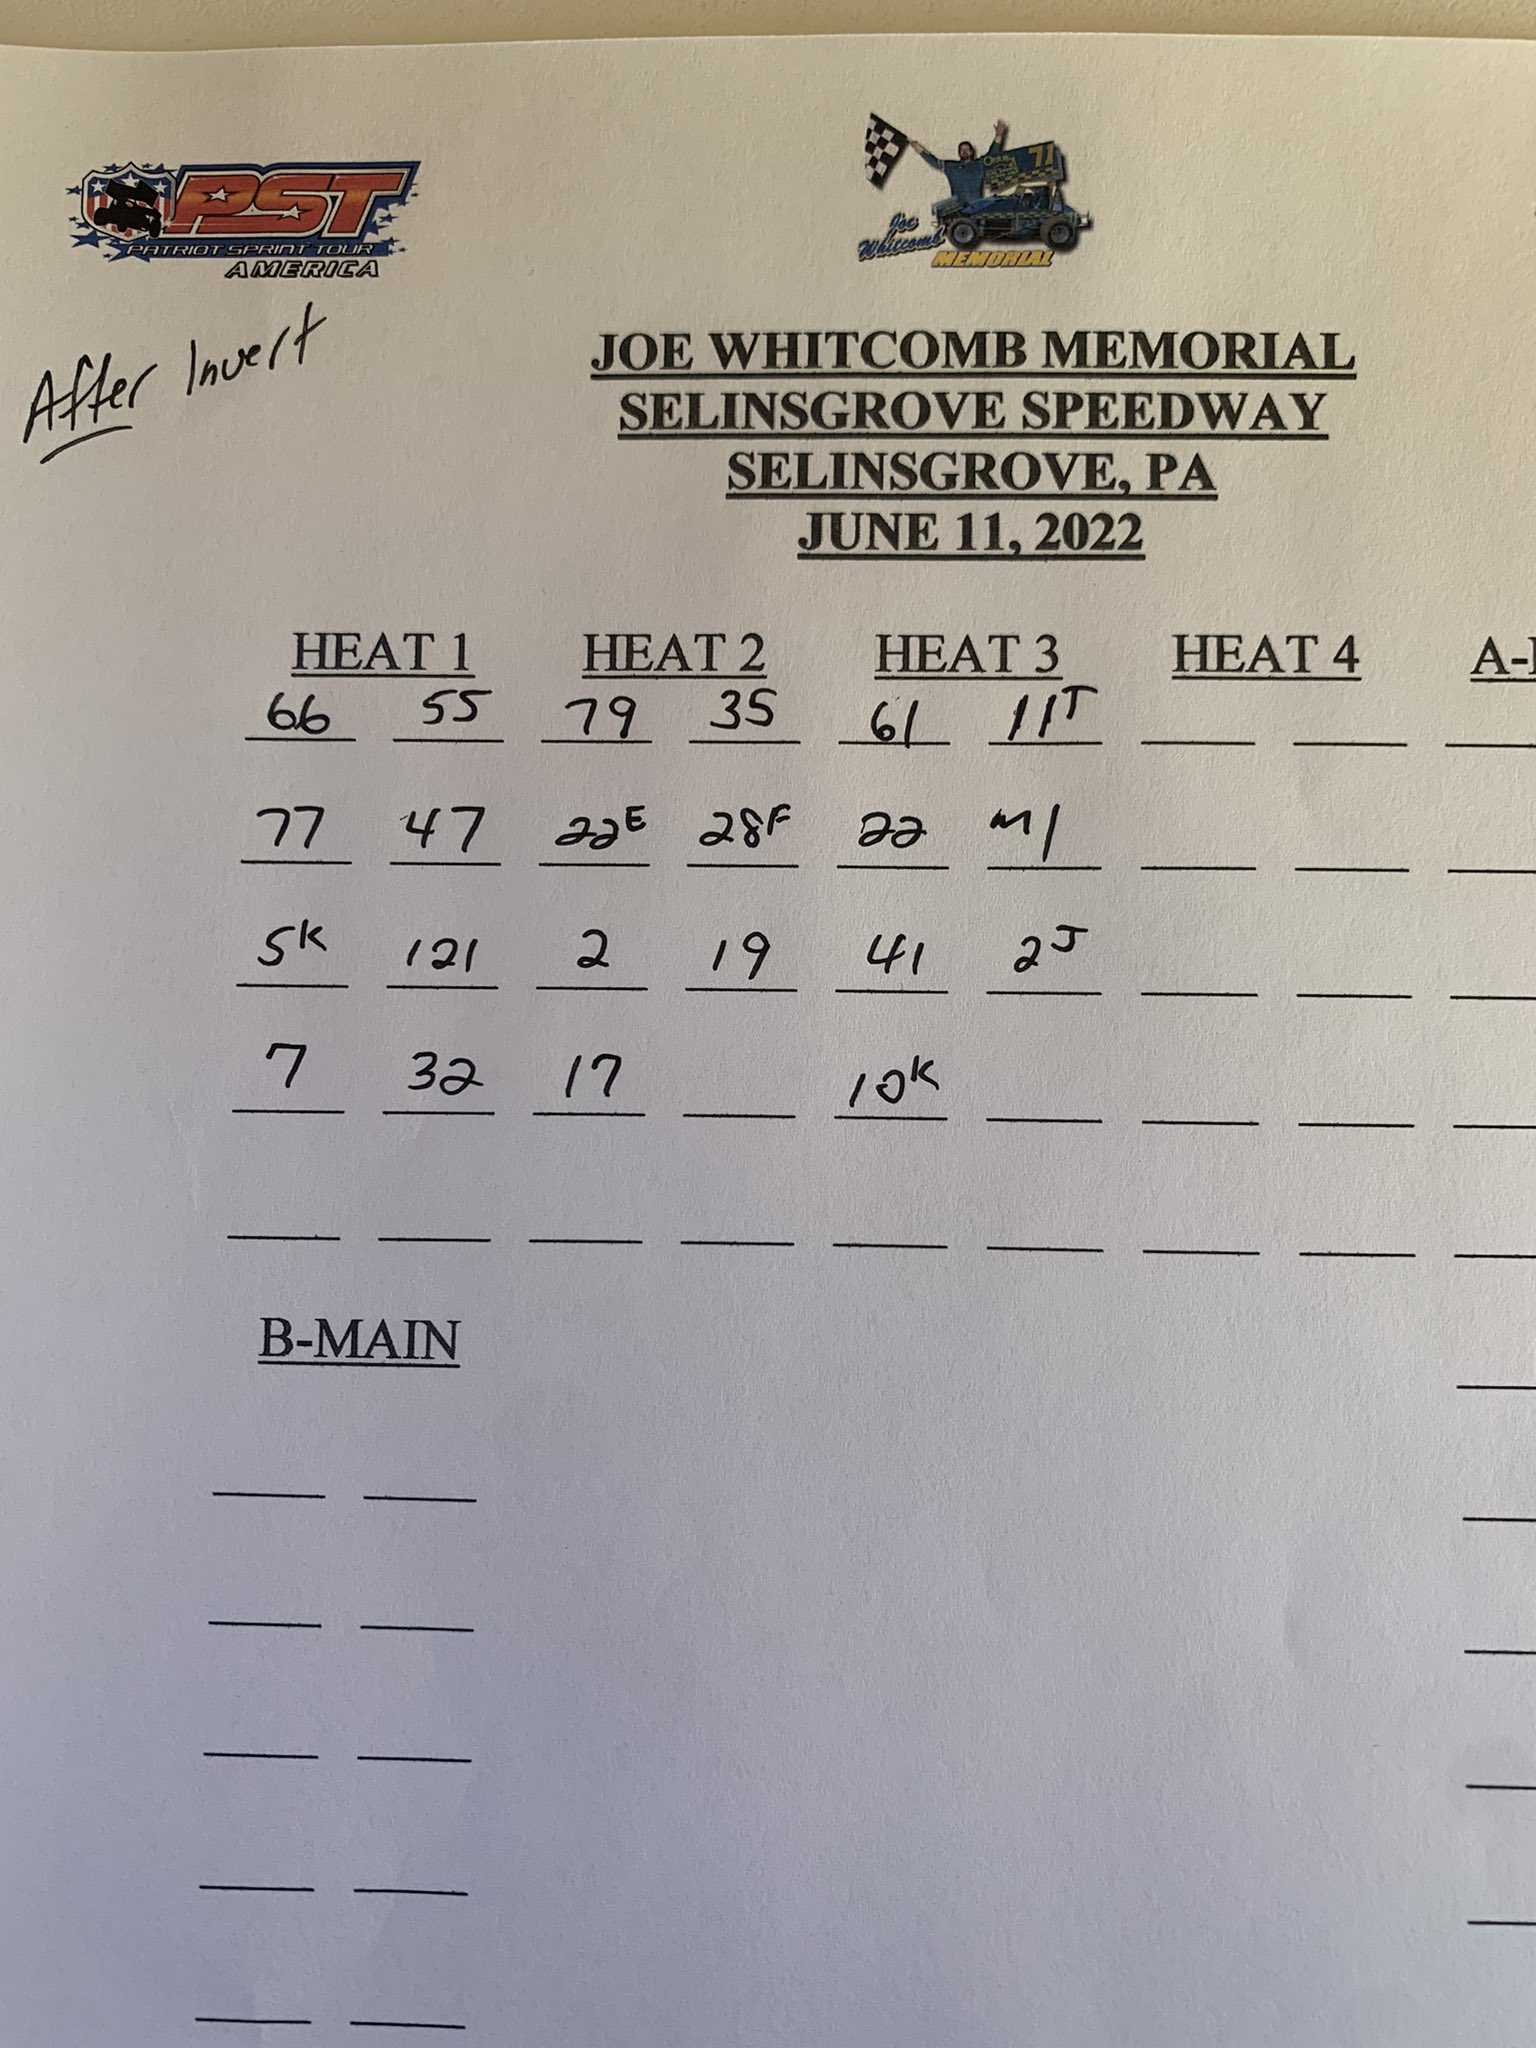 PST
PATRIOT SPRINT TOUR
AMERICA
71
Joe
Whitcomb
MEMORIAL
After Invert
JOE WHITCOMB MEMORIAL
SELINSGROVE SPEEDWAY
SELINSGROVE, PA
JUNE 11, 2022
HEAT 1 HEAT 2 HEAT 3 HEAT 4
66 55 79 35 61 11T
77 47 22E 28F 22 M1
5K 121 2 19 41 2J
7 32 17 10K
B-MAIN